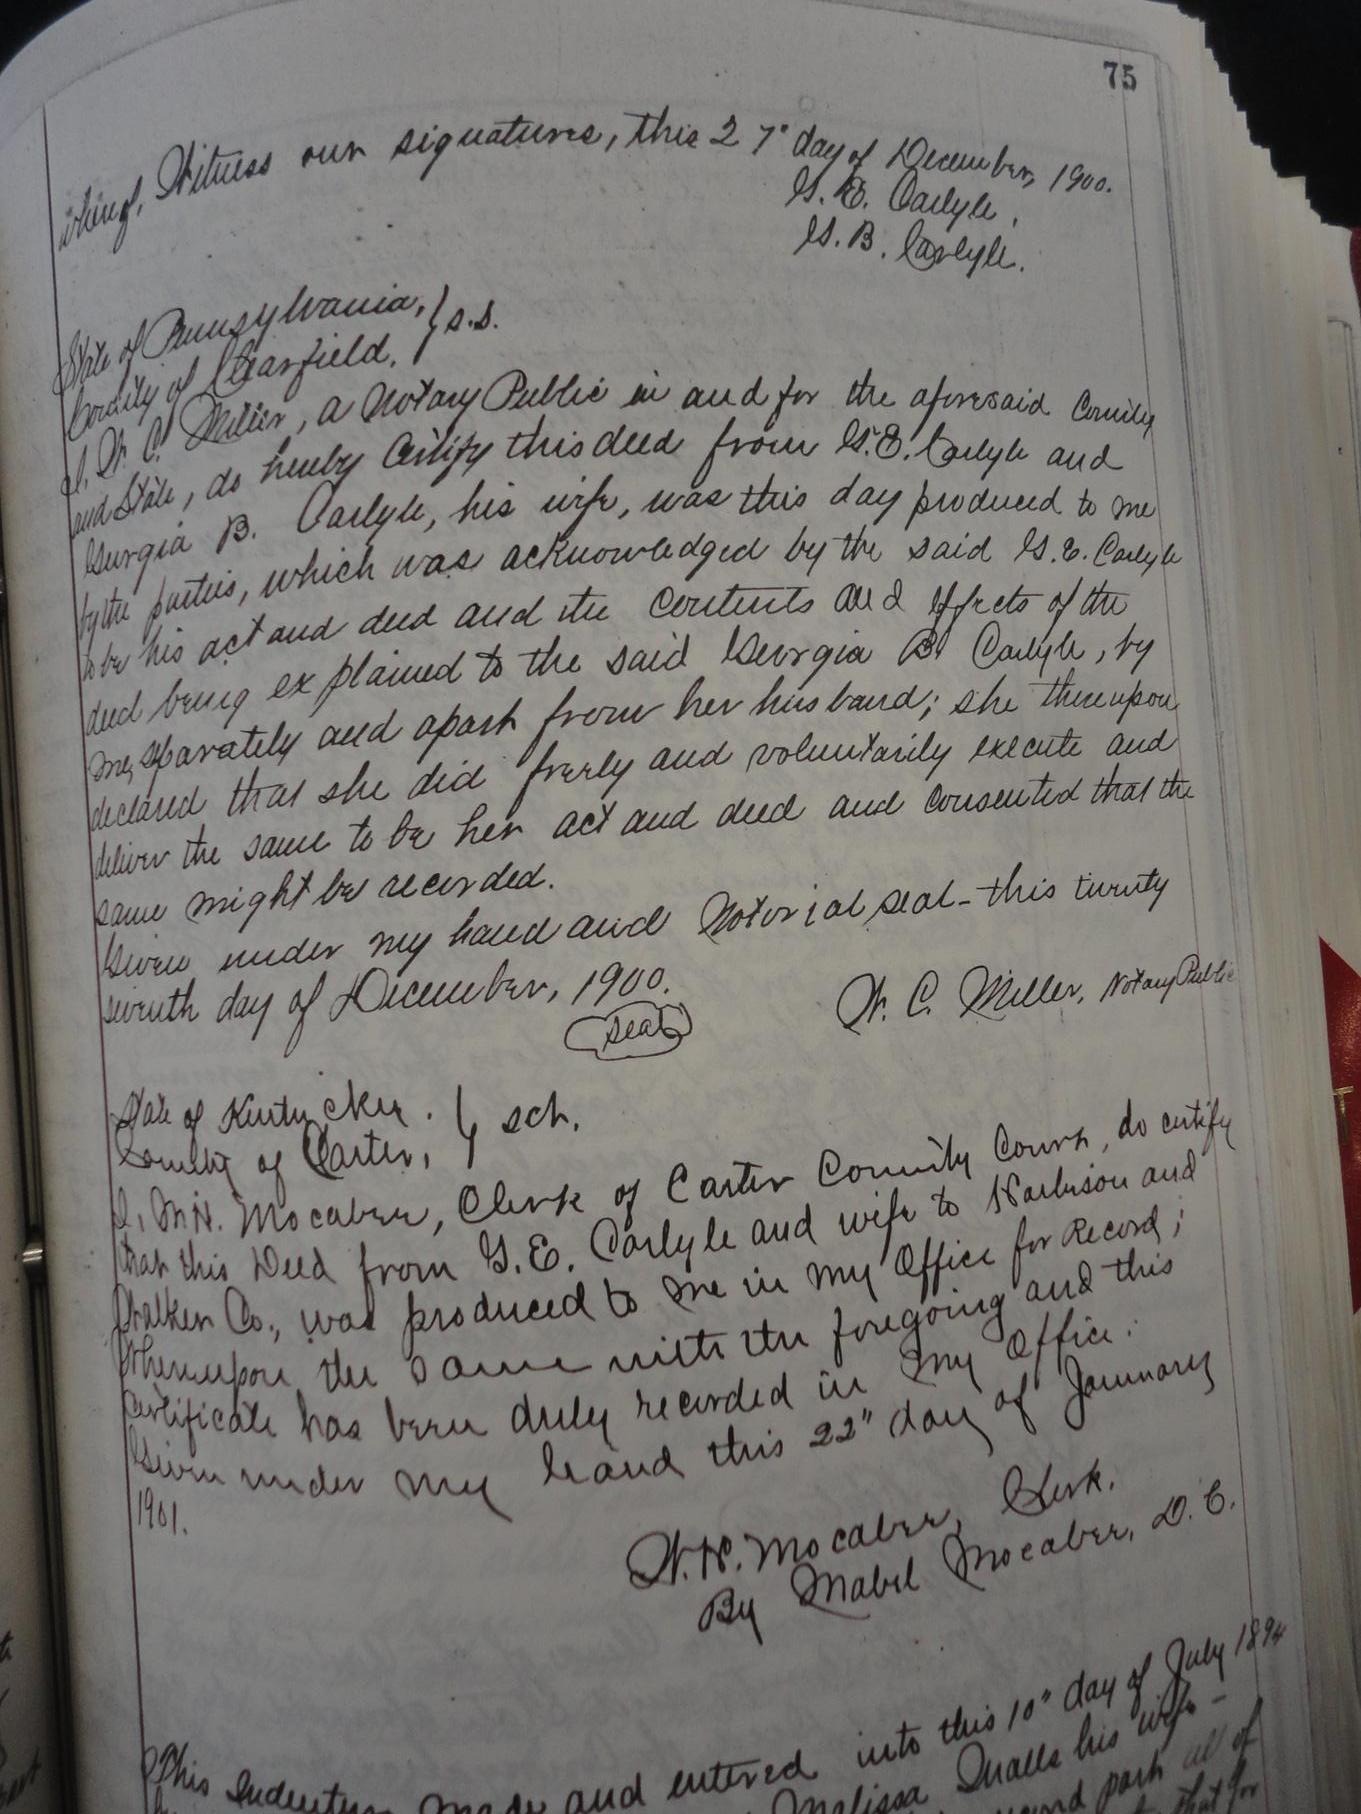 75
whereof, Witness our signatures, this 27" day of December, 1900.
G. E. Carlyle,
G. B. Carlyle.
State of Pennsylvania, } s.s.
County of Clearfield.
I, W. C. Miller, a Notary Public in and for the aforesaid County
and State, do hereby Certify this deed from G. E. Carlyle and
Georgia B. Carlyle, his wife, was this day produced to me
by the parties, which was acknowledged by the said G. E. Carlyle
to be his act and deed and the contents and effects of the
deed being explained to the said Georgia B. Carlyle, by
me, separately and apart from her husband; she thereupon
declared that she did freely and voluntarily execute and
deliver the same to be her act and deed and consented that the
same might be recorded.
Given under my hand and Notorial seal - this twenty
seventh day of December, 1900.
seal
W. C. Miller, Notary Public
State of Kentucky. } sch.
County of Carter,
I, W.H. Mocabee, Clerk of Carter County Court, do certify
that this Deed from G. E. Carlyle and wife to Harbison and
Walker Co., was produced to me in my Office for Record;
Whereupon the same with the foregoing and this
certificate has been duly recorded in my office.
Given under my hand this 22" day of January
1901.
W.H. Mocabee, Clerk.
By Mabel Mocabee, D. C.
This Indenture made and entered into this 10" day of July 1894
Malissa Qualls his wife -
second part all of
that for